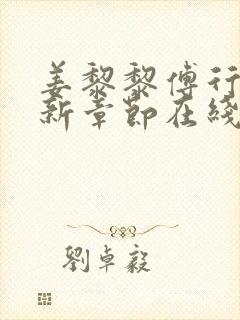 姜黎黎傅行
新章節在綫
劉卓毅